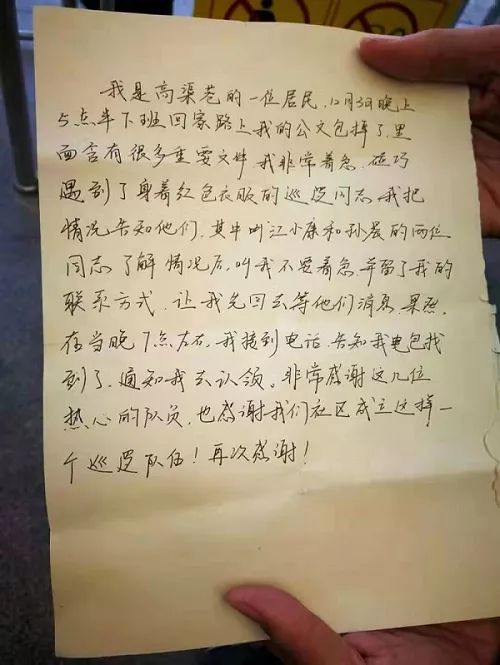 我是高渠巷的一位居民，12月3日晚上
5点半下班回家路上我的公文包掉了，里
面含有很多重要文件，我非常着急，碰巧
遇到了身着红色衣服的巡逻同志，我把
情况告知他们，其中叫江小康和孙晨的两位
同志了解情况后，叫我不要着急，并留了我的
联系方式，让我先回去等他们消息，果然，
在当晚7点左右，我接到电话，告知我包找
到了，通知我去认领。非常感谢这几位
热心的队员，也感谢我们社区成立这样一
个巡逻队伍！再次感谢！